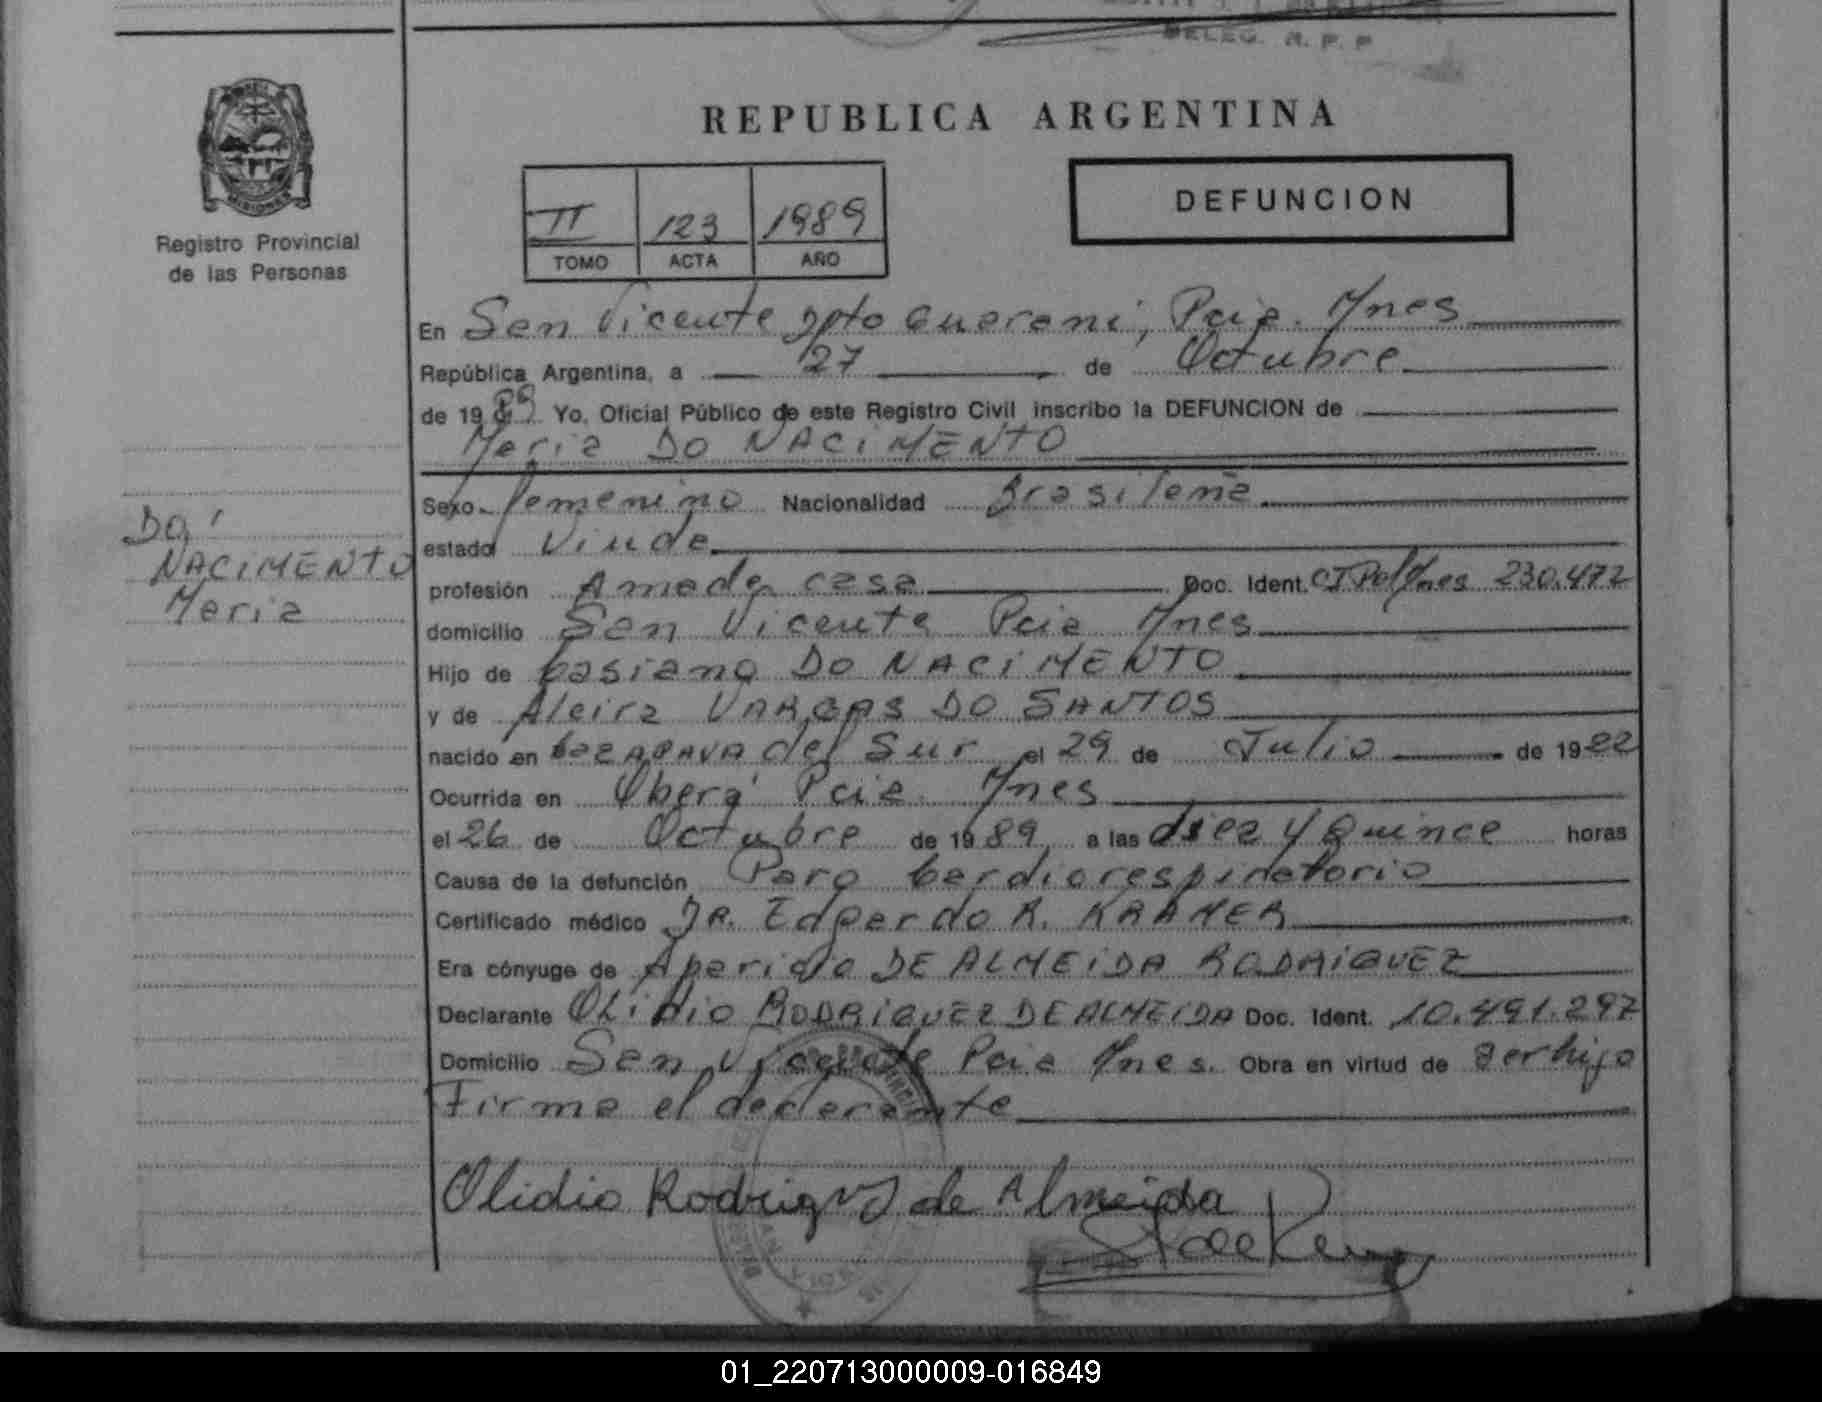 DELEG. R. P. P
REPUBLICA ARGENTINA
MISIONES
Registro Provincial
de las Personas
DEFUNCION
II 123 1989
TOMO ACTA AÑO
En San Vicente Dpto Guarani, Pcia. Mnes
República Argentina, a 27 de Octubre
de 1989 Yo, Oficial Público de este Registro Civil inscribo la DEFUNCION de
Maria DO NACiMENTO
Sexo Femenino Nacionalidad Brasileña
Do
NACiMENTO
Maria
estado Viuda
profesión Ama de casa Doc. Ident. CI Pol Mnes 230.472
domicilio San Vicente Pcia Mnes
Hijo de Casiano DO NACiMENTO
y de Alcira VARGAS DO SANTOS
nacido en CaZAPAVA del Sur el 29 de Julio de 1922
Ocurrida en Oberá Pcia Mnes
el 26 de Octubre de 1989 a las diez y Quince horas
Causa de la defunción Paro Cardiorespiratorio
Certificado médico DR. Edgardo R. KRAMER
Era cónyuge de Aparicio DE ALMEiDA RODRiGUEZ
Declarante OLidio RODRiGUEZ DE ALMEiDA Doc. Ident. 10.491.297
Domicilio San Vicente Pcia Mnes. Obra en virtud de ser hijo
Firma el declarante
Olidio Rodriguez de Almeida
01_220713000009-016849